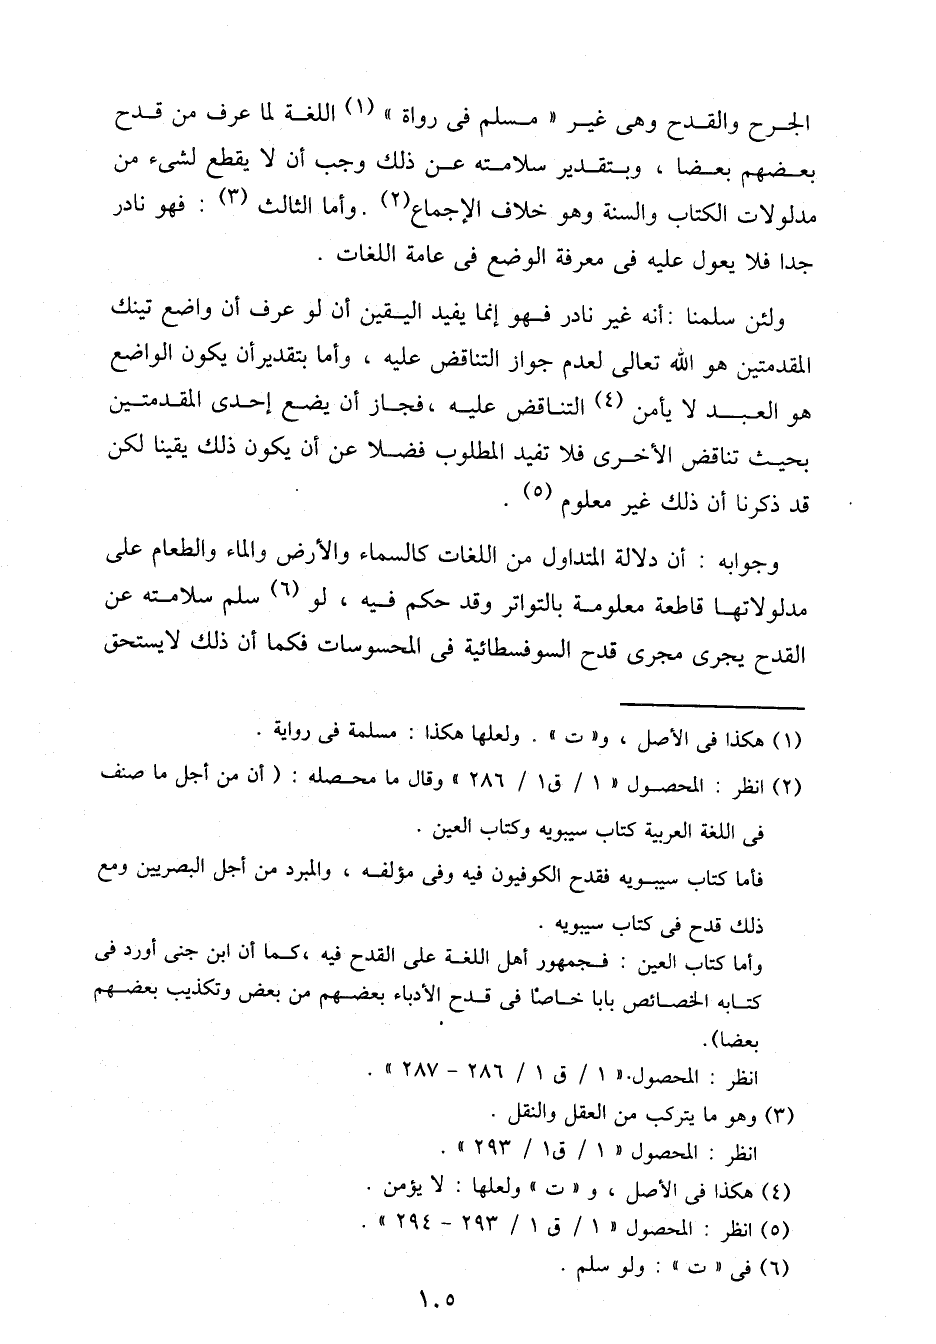 الجرح والقدح وهى غير « مسلم فى رواة » (١) اللغة لما عرف من قدح
بعضهم بعضا ، وبتقدير سلامته عن ذلك وجب أن لا يقطع لشىء من
مدلولات الكتاب والسنة وهو خلاف الإجماع(٢) .وأما الثالث (٣) : فهو نادر
جدا فلا يعول عليه فى معرفة الوضع فى عامة اللغات .
ولئن سلمنا :أنه غير نادر فهو إنما يفيد اليقين أن لو عرف أن واضع تينك
المقدمتين هو الله تعالى لعدم جواز التناقض عليه ، وأما بتقديرأن يكون الواضع
هو العبد لا يأمن (٤) التناقض عليه ،فجاز أن يضع إحدى المقدمتين
بحيث تناقض الأخرى فلا تفيد المطلوب فضلا عن أن يكون ذلك يقينا لكن
قد ذكرنا أن ذلك غير معلوم (٥) .
وجوابه : أن دلالة المتداول من اللغات كالسماء والأرض والماء والطعام على
مدلولاتها قاطعة معلومة بالتواتر وقد حكم فيه ، لو (٦) سلم سلامته عن
القدح يجرى مجرى قدح السوفسطائية فى المحسوسات فكما أن ذلك لايستحق
(١) هكذا فى الأصل ، و« ت » . ولعلها هكذا : مسلمة فى رواية .
(٢) انظر : المحصول « ١ / ق١ / ٢٨٦ » وقال ما محصله : ( أن من أجل ما صنف
فى اللغة العربية كتاب سيبويه وكتاب العين .
فأما كتاب سيبويه فقدح الكوفيون فيه وفى مؤلفه ، والمبرد من أجل البصريين ومع
ذلك قدح فى كتاب سيبويه .
وأما كتاب العين : فجمهور أهل اللغة على القدح فيه ،كما أن ابن جنى أورد فى
كتابه الخصائص بابا خاصًا فى قدح الأدباء بعضهم من بعض وتكذيب بعضهم
بعضا).
انظر : المحصول.« ١ / ق ١ / ٢٨٦ - ٢٨٧ » .
(٣) وهو ما يتركب من العقل والنقل .
انظر : المحصول « ١ / ق١ / ٢٩٣ » .
(٤) هكذا فى الأصل ، و « ت » ولعلها : لا يؤمن .
(٥) انظر : المحصول « ١ / ق ١ / ٢٩٣ - ٢٩٤ » .
(٦) فى « ت » : ولو سلم .
١٠٥